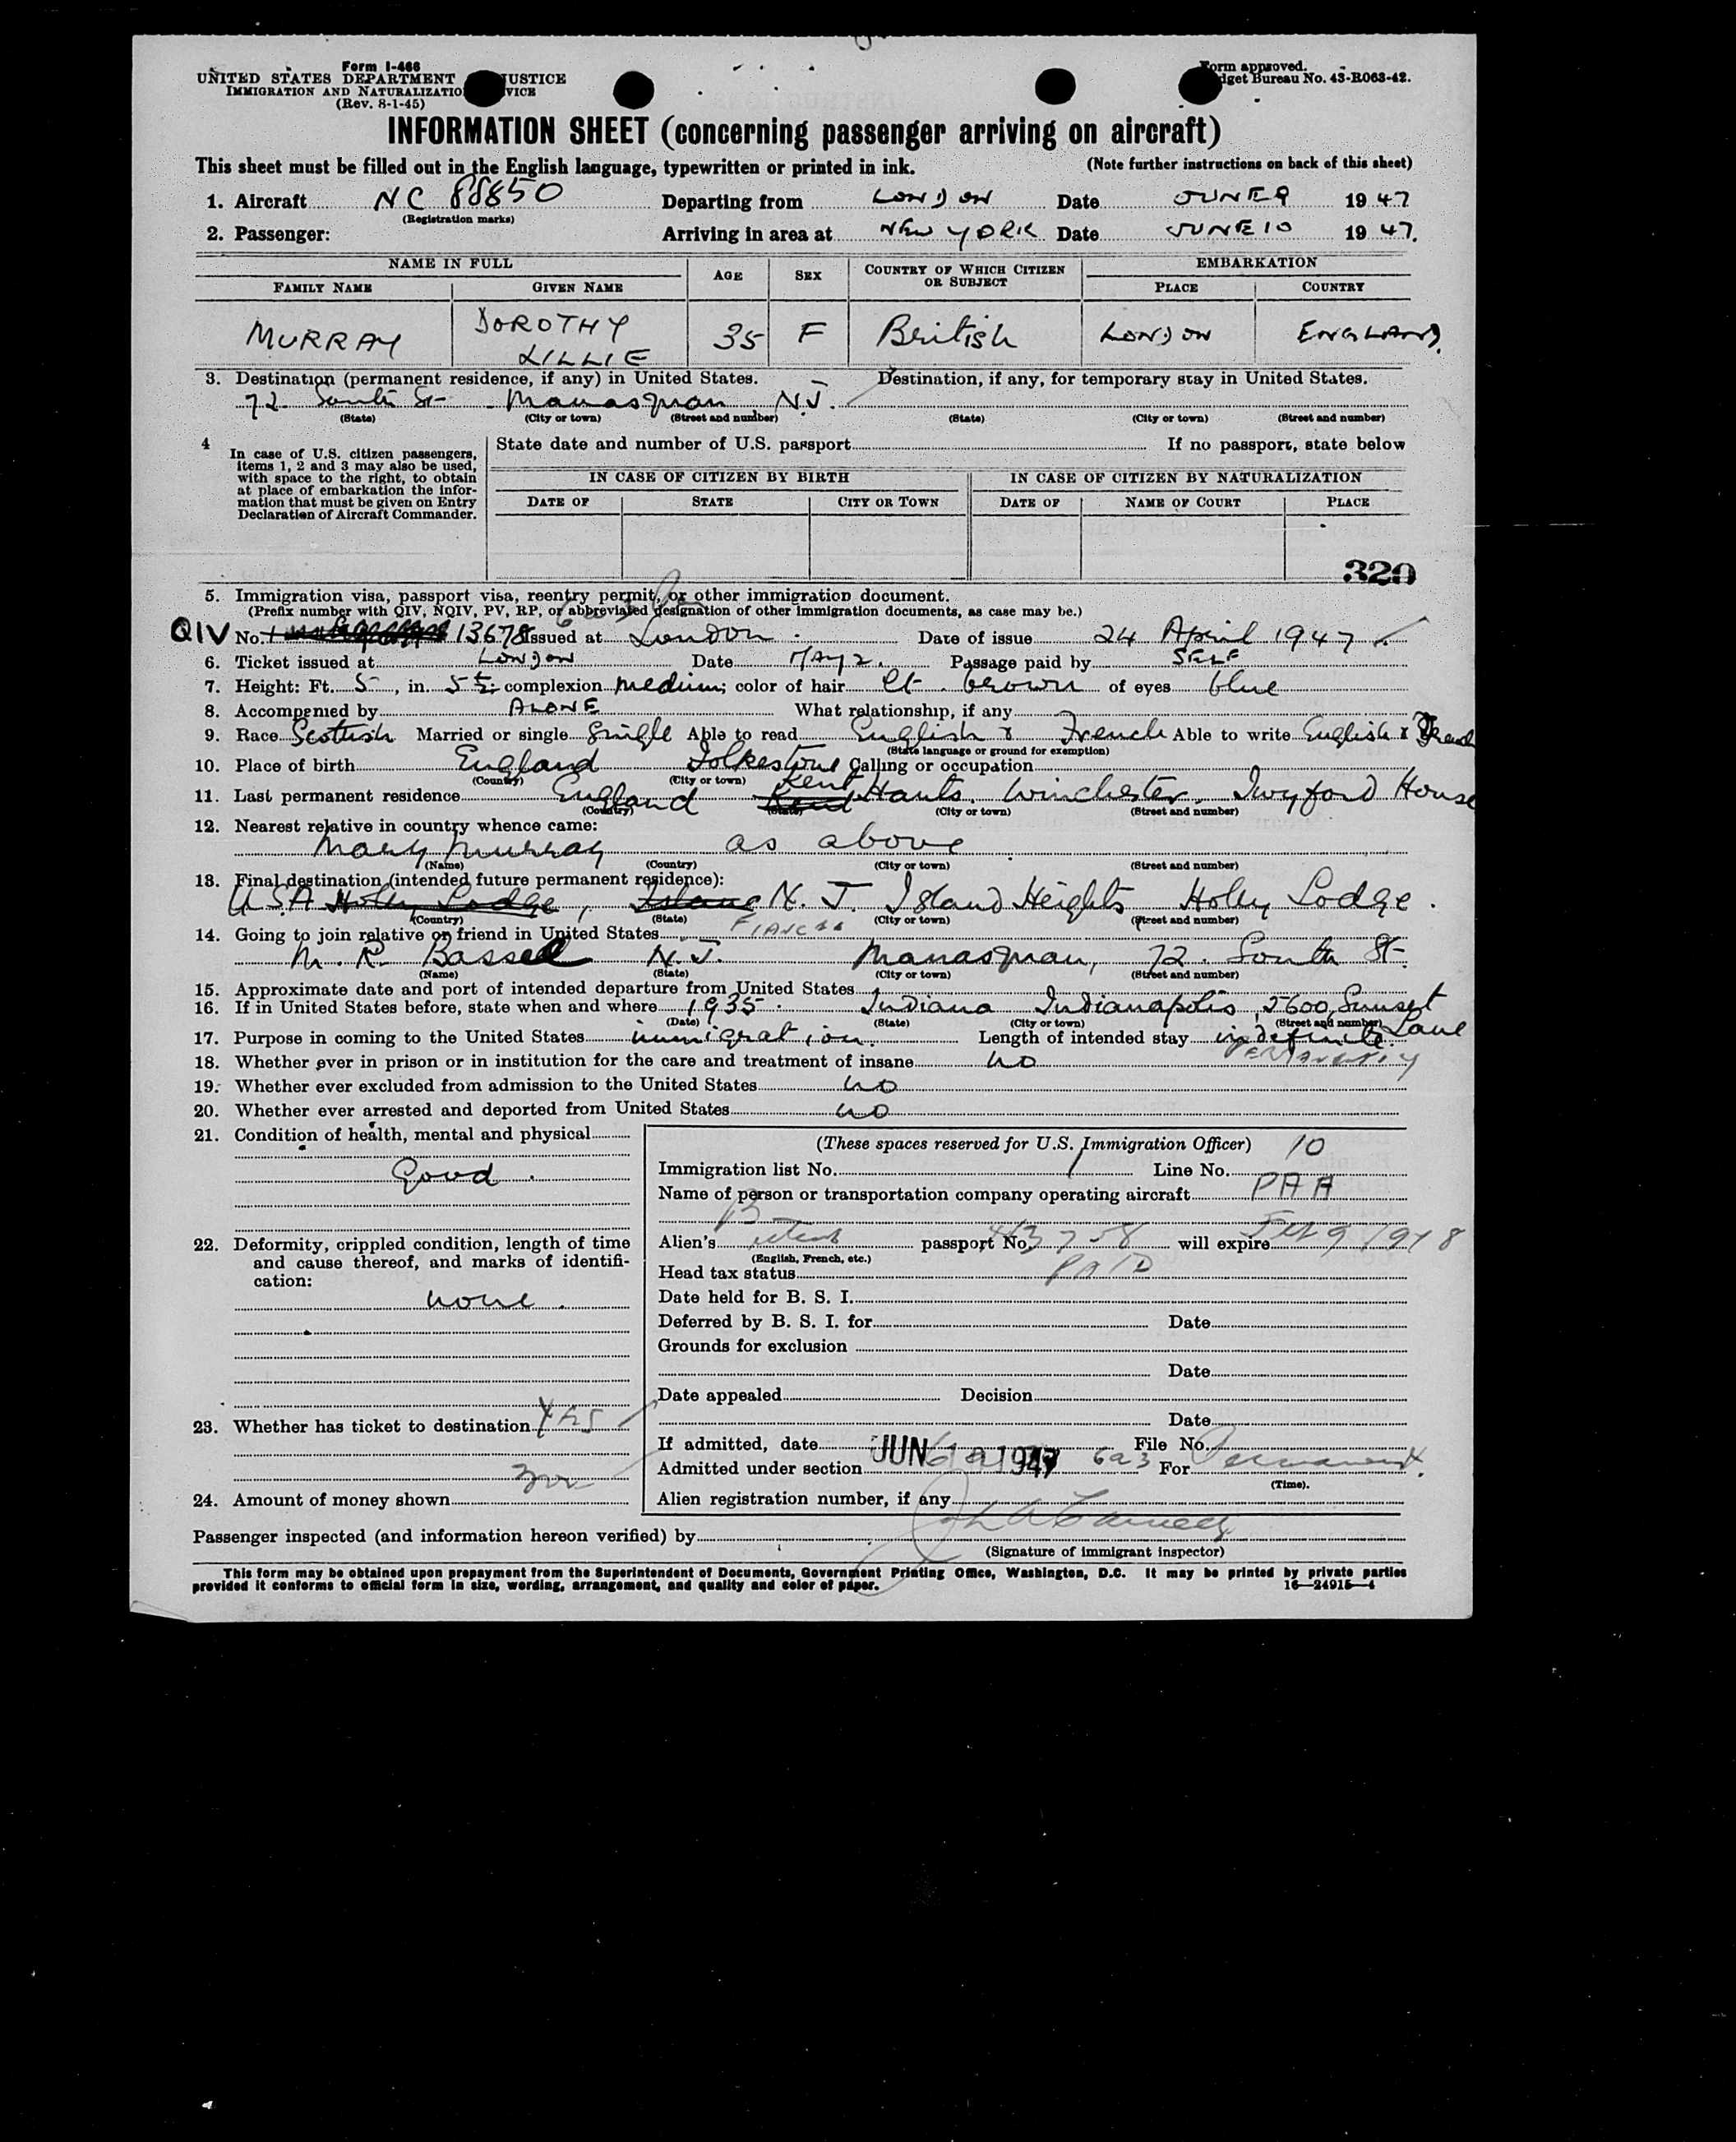 Form I-466
UNITED STATES DEPARTMENT JUSTICE
IMMIGRATION AND NATURALIZATIO VICE
(Rev. 8-1-45)
Form approved.
dget Bureau No. 43-R063-42.
INFORMATION SHEET (concerning passenger arriving on aircraft)
This sheet must be filled out in the English language, typewritten or printed in ink. (Note further instructions on back of this sheet)
1. Aircraft NC 88850 Departing from LONDON Date JUNE 9 1947
(Registration marks)
2. Passenger: Arriving in area at NEW YORK Date JUNE 10 1947.
NAME IN FULL AGE SEX COUNTRY OF WHICH CITIZEN OR SUBJECT EMBARKATION
FAMILY NAME GIVEN NAME PLACE COUNTRY
MURRAY DOROTHY LILLIE 35 F British LONDON ENGLAND.
3. Destination (permanent residence, if any) in United States. Destination, if any, for temporary stay in United States.
72 South St- Manasquan N.J.
(State) (City or town) (Street and number) (State) (City or town) (Street and number)
4 In case of U.S. citizen passengers, items 1, 2 and 3 may also be used, with space to the right, to obtain at place of embarkation the information that must be given on Entry Declaration of Aircraft Commander.
State date and number of U.S. passport If no passport, state below
IN CASE OF CITIZEN BY BIRTH IN CASE OF CITIZEN BY NATURALIZATION
DATE OF STATE CITY OR TOWN DATE OF NAME OF COURT PLACE
320
5. Immigration visa, passport visa, reentry permit, or other immigration document.
(Prefix number with QIV, NQIV, PV, RP, or abbreviated designation of other immigration documents, as case may be.)
QIV No. 13678 Issued at London. Date of issue 24 April 1947
6. Ticket issued at LONDON Date MAY 2. Passage paid by SELF
7. Height: Ft. 5, in. 5½; complexion medium; color of hair lt. brown of eyes blue
8. Accompenied by ALONE What relationship, if any
9. Race Scottish Married or single Single Able to read English & French Able to write English & French
(State language or ground for exemption)
10. Place of birth England Folkestone Calling or occupation
(Country) (City or town) Kent
11. Last permanent residence England Kent Hants. Winchester. Twyford House
(Country) (State) (City or town) (Street and number)
12. Nearest relative in country whence came:
Mary Murray as above
(Name) (Country) (City or town) (Street and number)
13. Final destination (intended future permanent residence):
USA Holly Lodge, Island N.J. Island Heights Holly Lodge.
(Country) (State) (City or town) (Street and number)
14. Going to join relative or friend in United States FIANCEE
M. R. Bassel N.J. Manasquan, 72. South St-
(Name) (State) (City or town) (Street and number)
15. Approximate date and port of intended departure from United States
16. If in United States before, state when and where 1935. Indiana Indianapolis, 5600, Sunset Lane
(Date) (State) (City or town) (Street and number)
17. Purpose in coming to the United States immigration. Length of intended stay indefinite.
PERMANENTLY
18. Whether ever in prison or in institution for the care and treatment of insane no
19. Whether ever excluded from admission to the United States no
20. Whether ever arrested and deported from United States no
21. Condition of health, mental and physical
Good.
22. Deformity, crippled condition, length of time and cause thereof, and marks of identification:
none.
23. Whether has ticket to destination YES
24. Amount of money shown
(These spaces reserved for U.S. Immigration Officer) 10
Immigration list No. 1 Line No.
Name of person or transportation company operating aircraft PAA
Alien's British passport No. 443758 will expire Feb 9 1948
(English, French, etc.)
Head tax status PAID
Date held for B. S. I.
Deferred by B. S. I. for Date
Grounds for exclusion
Date
Date appealed Decision
Date
If admitted, date JUN 10 1947 File No.
Admitted under section 6a3 For Permanent.
(Time).
Alien registration number, if any
Passenger inspected (and information hereon verified) by
(Signature of immigrant inspector)
This form may be obtained upon prepayment from the Superintendent of Documents, Government Printing Office, Washington, D.C. It may be printed by private parties
provided it conforms to official form in size, wording, arrangement, and quality and color of paper. 16—24915—4